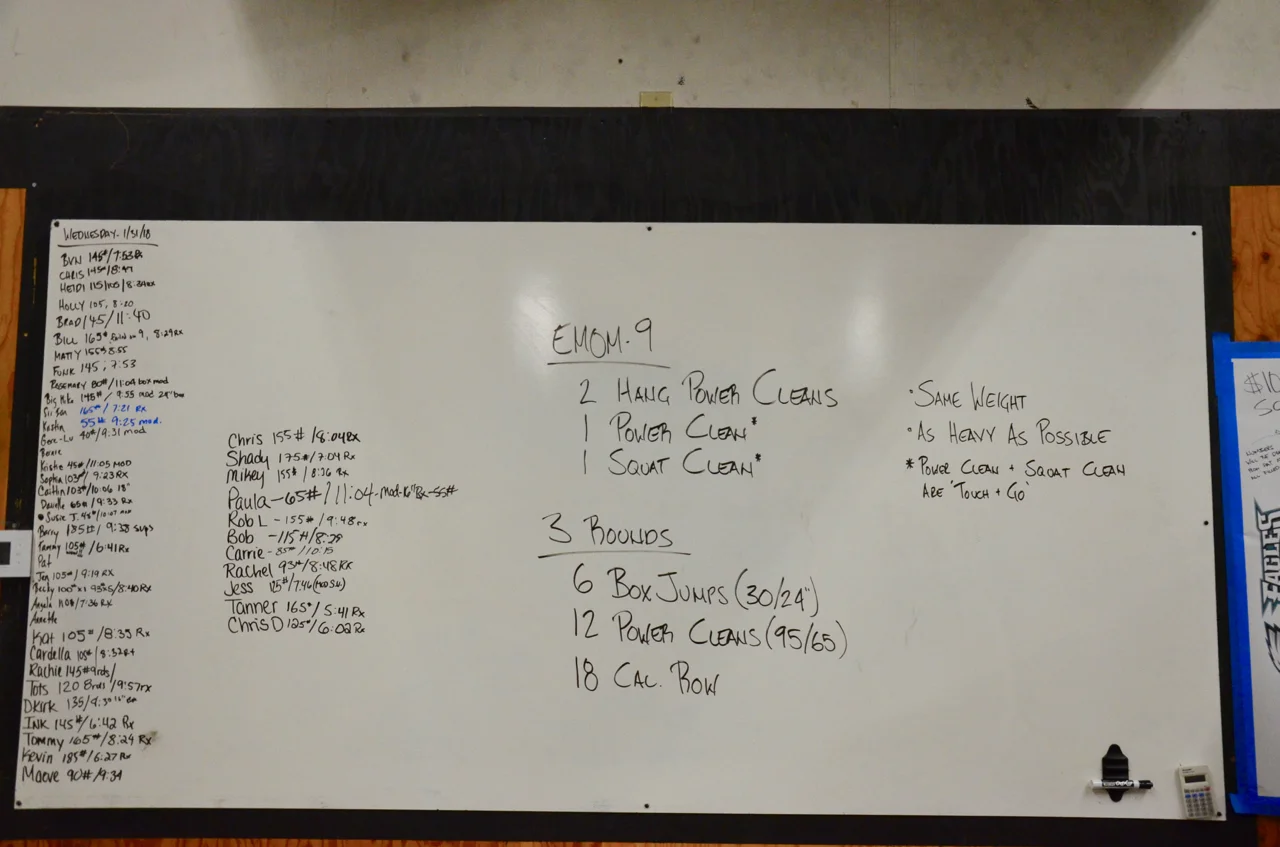 WEDNESDAY - 1/31/18
BVN 145#/7:53 Rx
CHRIS 145#/8:47
HEIDI 115/105/8:34Rx
HOLLY 105, 8:20
BRAD 145/11:40
BILL 165# 9, 8:29 Rx
MATTY 155# 8:55
FUNK 145, 7:53
ROSEMARY 80#/11:04 box mod
Big Mike 145#/9:55 mod 24" box
165#/7:21 Rx
55# 9:25 mod.
Gere-Lu 40#/9:31 mod
Roxie
45#/11:05 MOD
Sophia 103#/9:23 Rx
Caitlin 103#/10:06 18"
Danielle 65#/9:33 Rx
Susie J. 45#/10:07 mod
Barry 185#/9:38
Tammy 105#/6:41 Rx
Pat
Jen 103#/9:19 RX
Becky 100# x1 95x5/8:40 Rx
Angela 110#/7:36 RX
Annette
Kat 105#/8:35 Rx
Cardella 105#/8:32 Rx
Rachie 145# 9rds/
Tots 120 8rds/9:57rx
DKirk 135/9:30
INK 145#/6:42 Rx
Tommy 165#/8:29 Rx
Kevin 185#/6:27 Rx
Maeve 90#/9:34
Chris 155#/8:04 Rx
Shady 175#/7:04 Rx
Mikey 155#/8:26 Rx
Paula - 65#/11:04 - mod - 16" Rx - 55#
Rob L - 155#/9:48 rx
Bob - 115#/8:28
Carrie - 85#/10:15
Rachel 93#/8:48 RX
Jess 125#/7:46
Tanner 165#/5:41 Rx
Chris D 125#/6:02 Rx
EMOM - 9
2 HANG POWER CLEANS
1 POWER CLEAN*
1 SQUAT CLEAN*
• SAME WEIGHT
• AS HEAVY AS POSSIBLE
* POWER CLEAN + SQUAT CLEAN
ARE "TOUCH + GO"
3 ROUNDS
6 BOX JUMPS (30/24")
12 POWER CLEANS (95/65)
18 CAL. ROW
$10
EAGLES